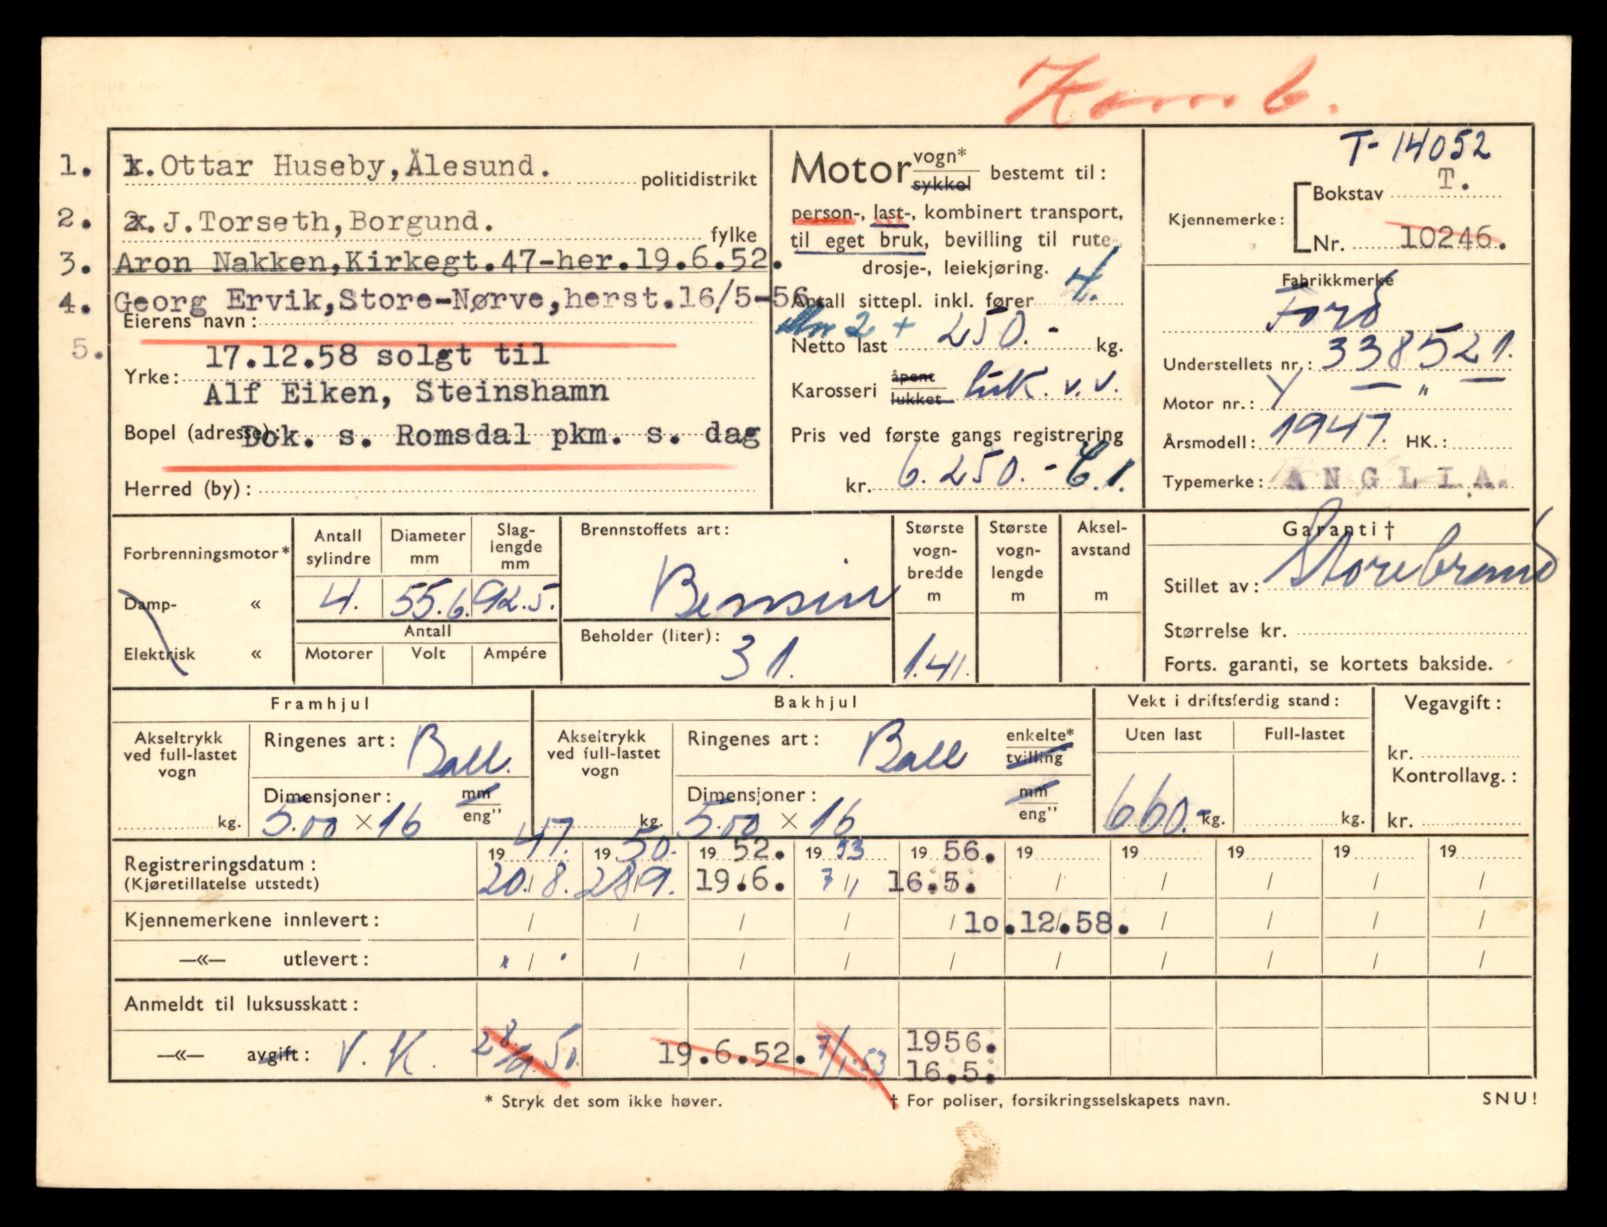 Komb.
1. 1. Ottar Huseby, Ålesund. politidistrikt
2. 2. J. Torseth, Borgund. fylke
3. Aron Nakken, Kirkegt. 47-her. 19.6.52.
4. Georg Ervik, Store-Nørve, herst. 16/5-56.
Eierens navn:
5. 17.12.58 solgt til
Yrke:
Alf Eiken, Steinshamn
Bopel (adresse): Dok. s. Romsdal pkm. s. dag
Herred (by):
Motor vogn* sykkel bestemt til:
person-, last-, kombinert transport,
til eget bruk, bevilling til rute-
drosje-, leiekjøring.
Antall sittepl. inkl. fører 4.
2 +
Netto last 250.- kg.
Karosseri åpent lukket luk. v.v.
Pris ved første gangs registrering
kr. 6.250.-
T-14052
Kjennemerke: Bokstav T.
Nr. 10246.
Fabrikkmerke
Ford
Understellets nr.: 338521.
Motor nr.: Y — " —
Årsmodell: 1947. HK.:
Typemerke: ANGLIA.
Forbrenningsmotor*
Damp- «
Elektrisk «
Antall sylindre Diameter mm Slag-lengde mm
4. 55.6. 92.5.
Antall
Motorer Volt Ampére
Brennstoffets art:
Bensin
Beholder (liter): 31.
Største vogn-bredde m Største vogn-lengde m Aksel-avstand m
1.41.
Garanti †
Stillet av: Storebrand
Størrelse kr.
Forts. garanti, se kortets bakside.
Framhjul
Akseltrykk ved full-lastet vogn
kg.
Ringenes art: Ball.
Dimensjoner: mm eng"
5.00 × 16
Bakhjul
Akseltrykk ved full-lastet vogn
kg.
Ringenes art: Ball enkelte* tvilling
Dimensjoner: mm eng"
5.00 × 16
Vekt i driftsferdig stand:
Uten last Full-lastet
660.- kg. kg.
Vegavgift:
kr.
Kontrollavg.:
kr.
Registreringsdatum: 19 47. 19 50. 19 52. 19 53 19 56. 19 19 19 19 19
(Kjøretillatelse utstedt) 20/8. 28/9. 19.6. 7/1 16.5. / / / / /
Kjennemerkene innlevert: / / / / / 10.12.58. / / / /
—«— utlevert: / / / / / / / / / /
Anmeldt til luksusskatt:
—«— avgift: V. K. 28/9.50. 19.6.52. 7/1.53 1956.
16.5.
* Stryk det som ikke høver. † For poliser, forsikringsselskapets navn. SNU!